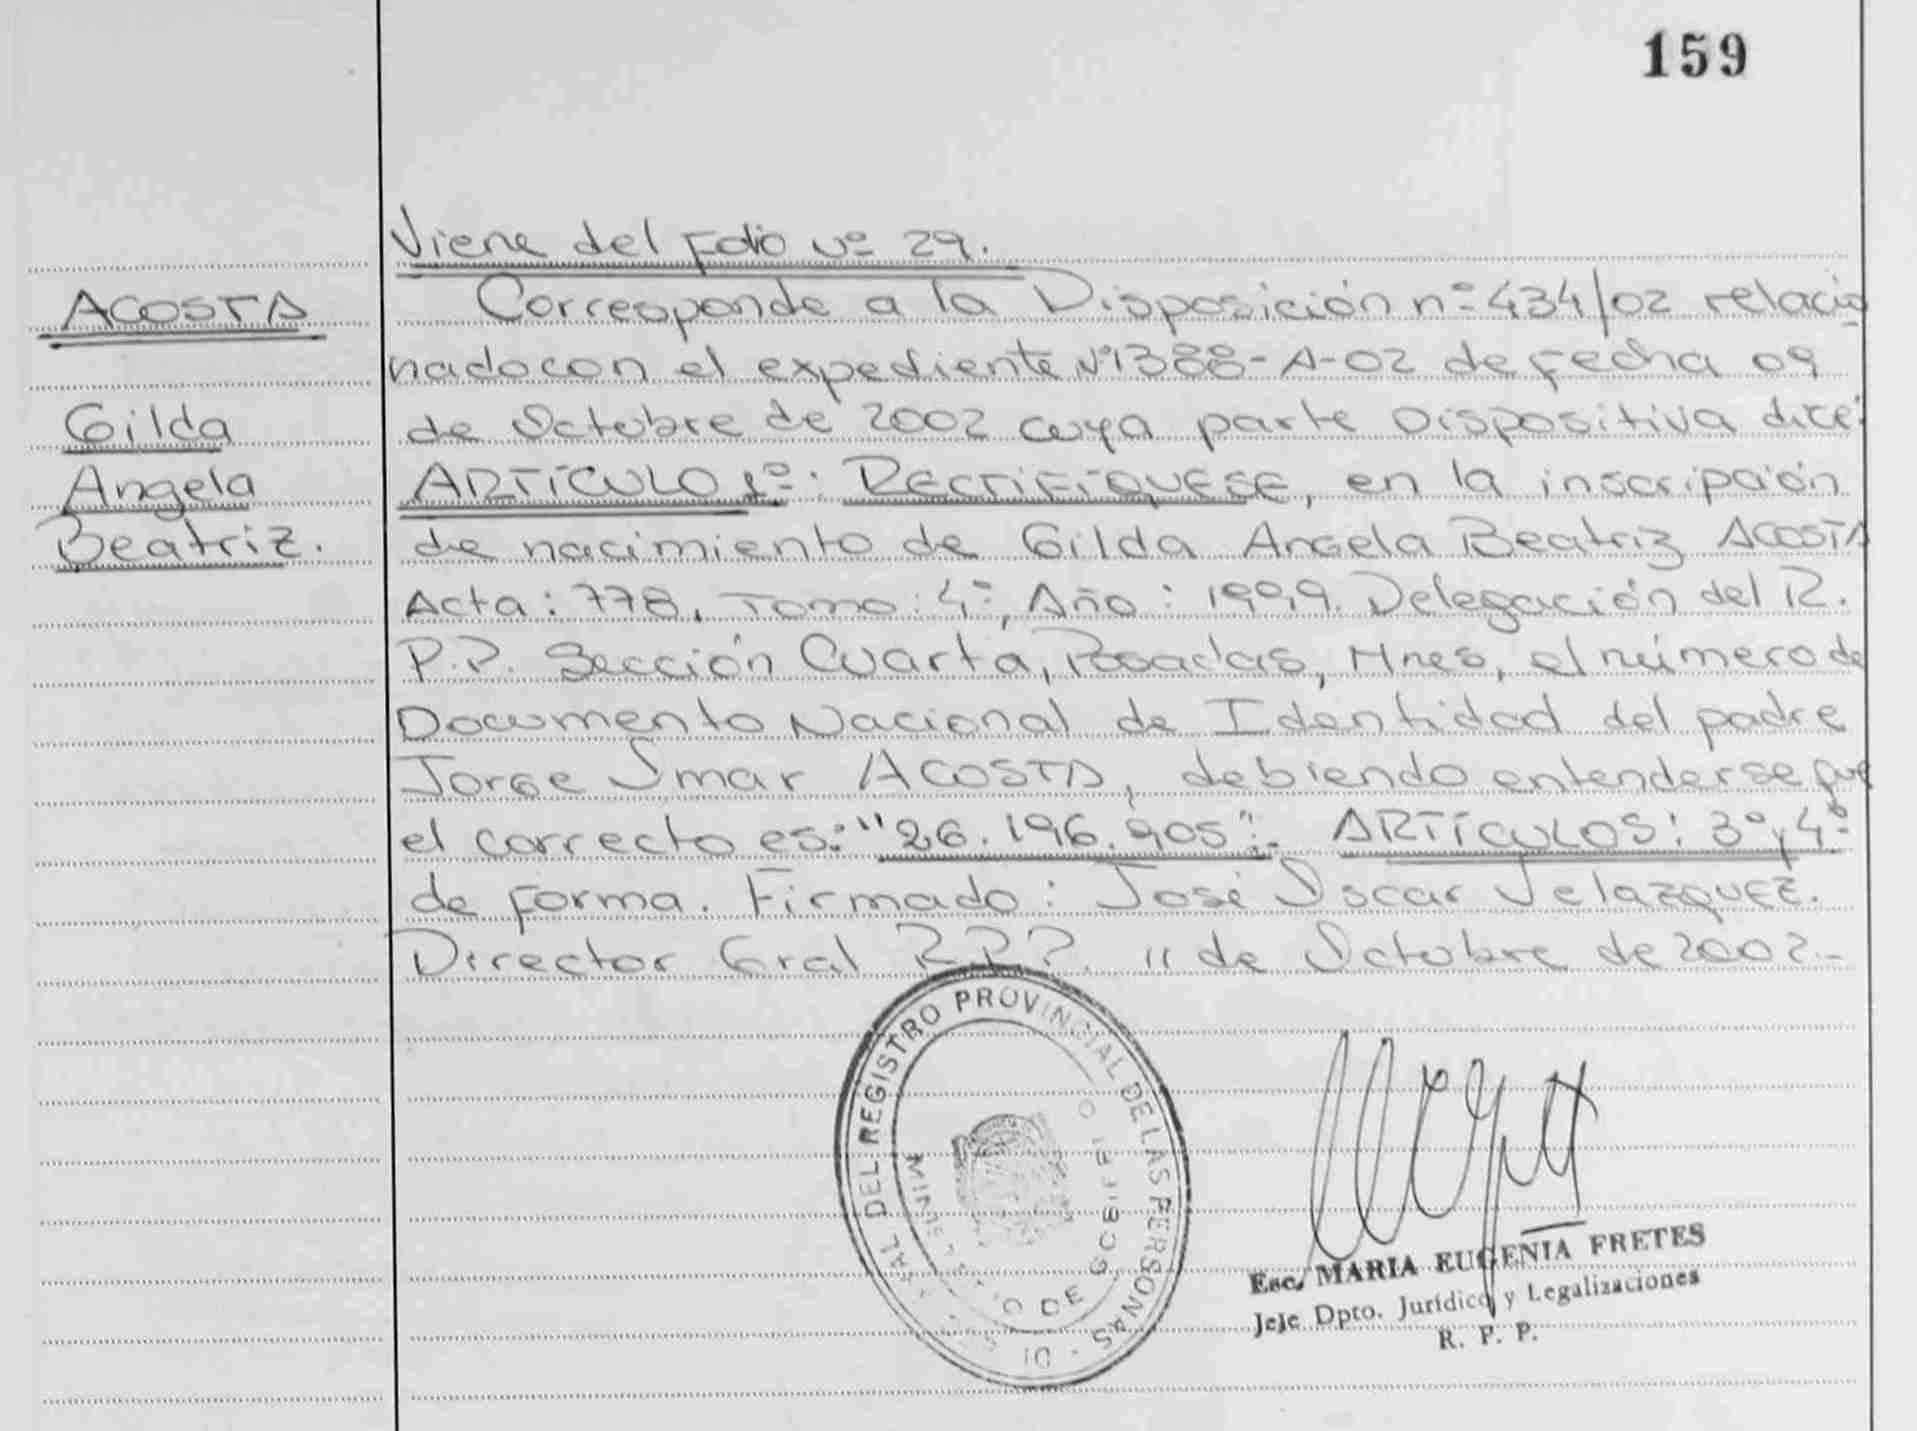 159
Viene del Folio Nº 29.
ACOSTA
Gilda
Angela
Beatriz.
Corresponde a la Disposición nº 434/02 relacio
nado con el expediente Nº 1388-A-02 de Fecha 09
de Octubre de 2002 cuya parte Dispositiva dice:
ARTÍCULO 1º: RECTIFÍQUESE, en la inscripción
de nacimiento de Gilda Angela Beatriz ACOSTA
Acta: 778, Tomo: 4º, Año: 1999. Delegación del R.
P.P. Sección Cuarta, Posadas, Mnes, el número de
Documento Nacional de Identidad del padre
Jorge Omar ACOSTA, debiendo entenderse que
el correcto es: "26.196.905":- ARTÍCULOS: 3º y 4º
de forma. Firmado: José Oscar Velazquez.
Director Gral R.P.P. 11 de Octubre de 2002.-
DEL REGISTRO PROVINCIAL DE LAS PERSONAS
DE GOBIERNO
Esc. MARIA EUGENIA FRETES
Jefe Dpto. Jurídico y Legalizaciones
R. P. P.